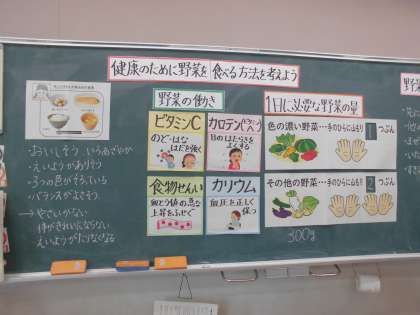 健康のために野菜を食べる方法を考えよう
・おいしそう いろあざやか
・えいようがありそう
・3つの色がそろっている
・バランスがよさそう
→やさいがない
体がきれいにならない
えいようがたりなくなる
野菜の働き
ビタミンC
のど・はな
はだを強く
カロテン
目のはたらきを
よくする
食物せんい
血とう値の急な
上昇をふせぐ
カリウム
血圧を正しく
保つ
1日に必要な野菜の量
色の濃い野菜…手のひらに山もり 1つぶん
その他の野菜…手のひらに山もり 2つぶん
300g